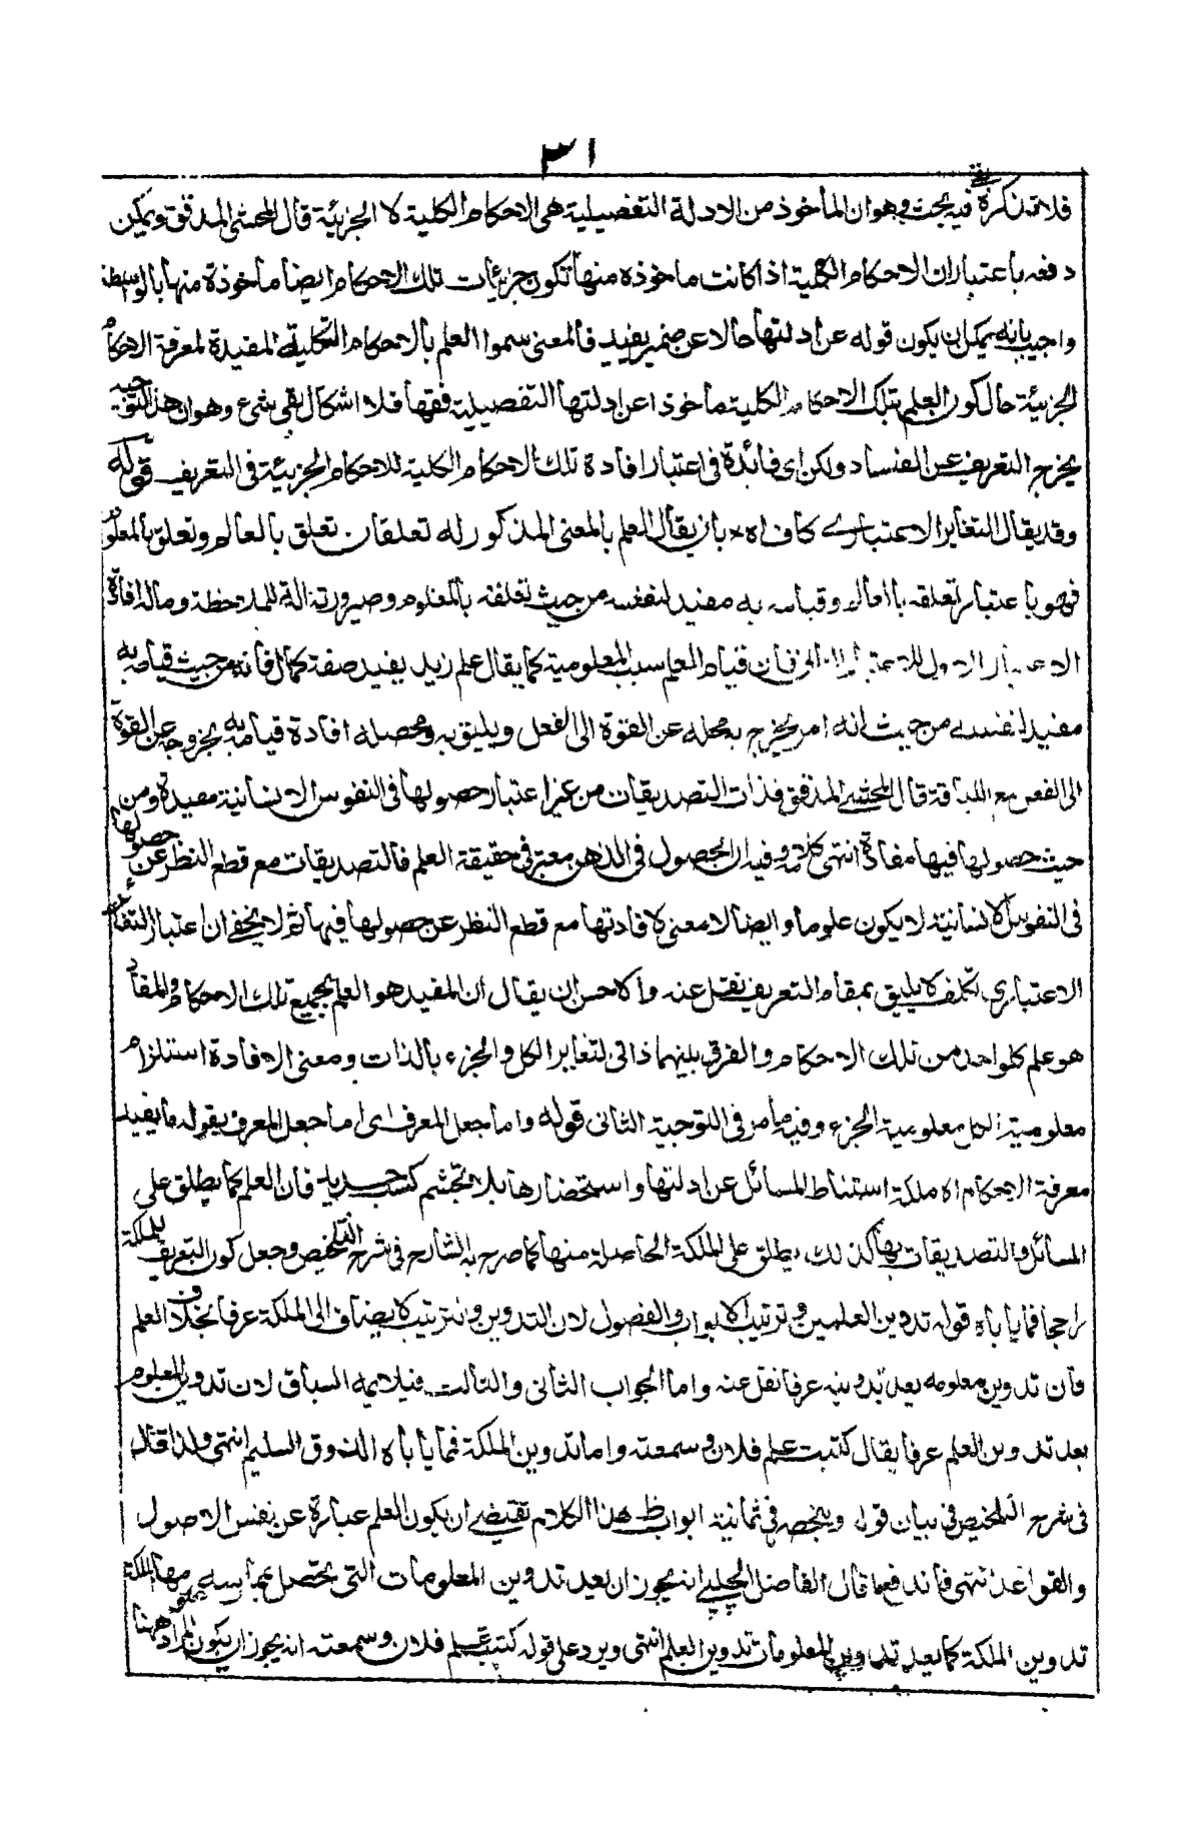 ٣١
فلا تذكرة فيه بحث وهو ان المأخوذ من الادلة التفصيلية هى الاحكام الكلية لا الجزئية قال المحشى المدقق ويمكن
دفعه باعتبار ان الاحكام الكلية اذا كانت ماخوذه منها تكون جزئيات تلك الاحكام ايضا ماخوذة منها بالواسطة
واجيب بانه يمكن ان يكون قوله عن ادلتها حالا عن ضمير يفيد فالمعنى سموا العلم بالاحكام الكلية المفيدة لمعرفة الاحكام
الجزئية حال كون العلم بتلك الاحكام الكلية ماخوذا عن ادلتها التفصيلية فقها فلا اشكال بقى شئ وهو ان هذا التوجيه
يخرج التعريف عن الفساد ولكن اى فائدة فى اعتبار افادة تلك الاحكام الكلية للاحكام الجزئية فى التعريف قوله
وقد يقال التغاير الاعتبارى كاف اه بان يقال العلم بالمعنى المذكور له تعلقان تعلق بالعالم وتعلق بالمعلوم
فهو باعتبار تعلقه بالعالم وقيامه به مفيد لنفسه من حيث تعلقه بالمعلوم وصيرورته الة للملاحظة وماله افادة
الاعتبار الاول للاعتبار الثانى فان قيام العلم سبب المعلومية كما يقال علم زيد يفيد صفة كمال فانه من حيث قيامه به
مفيد لنفسه من حيث انه امر يخرج به محله عن القوة الى الفعل ويليق به ومحصله افادة قيامه به بخروجه عن القوة
الى الفعل مع اللياقة قال المحشى المدقق فذات التصديقات من غير اعتبار حصولها فى النفوس الانسانية مفيدة ومن
حيث حصولها فيها مفادة انتهى كلامه وفيه ان الحصول فى الذهن معتبر فى حقيقة العلم فالتصديقات مع قطع النظر عن حصولها
فى النفوس الانسانية لا يكون علوما وايضا لا معنى لافادتها مع قطع النظر عن حصولها فيها ثم لا يخفى ان اعتبار التغاير
الاعتبارى تكلف لا يليق بمقام التعريف نقل عنه والاحسن ان يقال ان المفيد هو العلم بجميع تلك الاحكام والمفاد
هو علم كل واحد من تلك الاحكام والفرق بينهما ذاتى لتغاير الكل والجزء بالذات ومعنى الافادة استلزام
معلومية الكل معلومية الجزء وفيه ما مر فى التوجية الثانى قوله واما جعل المعرف اى اما جعل المعرف بقوله ما يفيد
معرفة الاحكام اه ملكة استنباط المسائل عن ادلتها واستحضارها بلا تجشم كسب جديد فان العلم كما يطلق على
المسائل والتصديقات بها كذلك يطلق على الملكة الحاصلة منها كما صرح به الشارح فى شرح التلخيص وجعل كون التعريف للملكة
راجحا فمايأباه قوله تدوين العلمين وترتيب الابواب والفصول لان التدوين وترتيب لا يضاف الى الملكة عرفا بخلاف العلم
فان تدوين معلومه يعد تدوينه عرفا نقل عنه واما الجواب الثانى والثالث فيلايمه السباق لان تدوين المعلوم
يعد تدوين العلم عرفا يقال كتبت علم فلان وسمعته واما تدوين الملكة فمما يأباه الذوق السليم انتهى ولذا قال
فى شرح التلخيص فى بيان قوله وينحصر فى ثمانية ابواب ظ هذا الكلام تقتضى ان يكون العلم عبارة عن نفس الاصول
والقواعد انتهى فاندفع ما قال الفاضل الجلبى انه يجوز ان يعد تدوين المعلومات التى يحصل بممارسه علومها الملكة
تدوين الملكة كما يعد تدوين المعلومات تدوين العلم انتهى ويرد على قوله كتبت علم فلان وسمعته انه يجوز ان يكون المراد ههنا